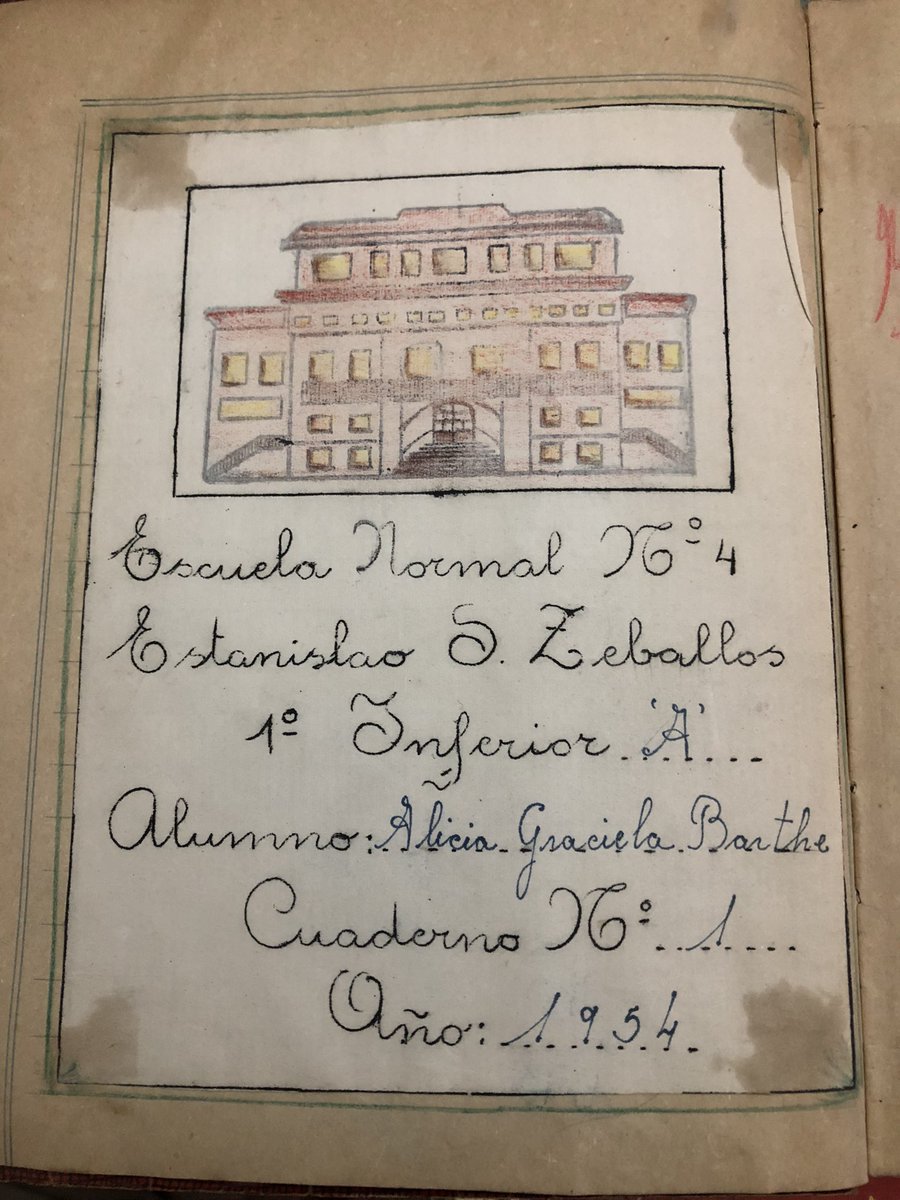 Escuela Normal Nº 4
Estanislao S. Zeballos
1º Inferior 'A'
Alumno: Alicia Graciela Barthe
Cuaderno Nº 1
Año: 1954